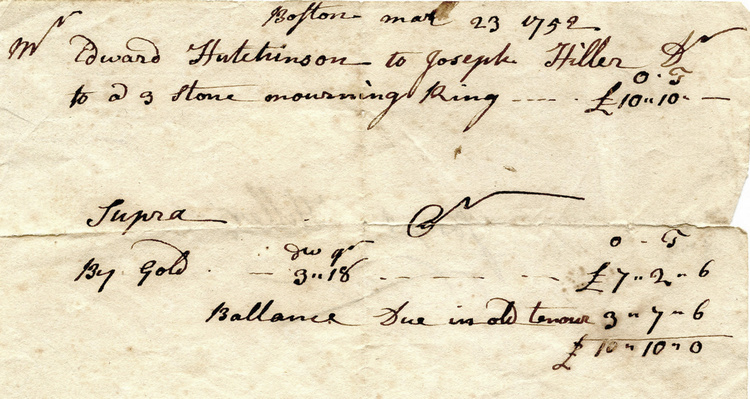 Boston mar 23 1752
Mr Edward Hutchinson to Joseph Hiller Dr
O . T
to a 3 Stone mourning Ring ---- £10"10"—
Supra Cr
dw gr O - T
By Gold - 3"18 - - - - - £7"2"6
Ballance Due in old tenour 3"7"6
£10"10"0